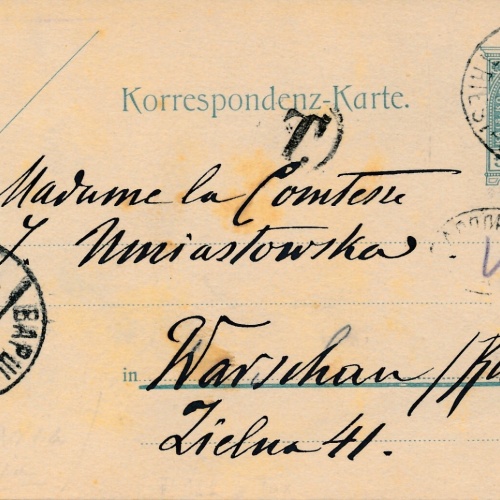 Korrespondenz-Karte.
T
Madame la Comtesse
J Umiastowska.
in Warschau
Zielna 41.
ВАРШ